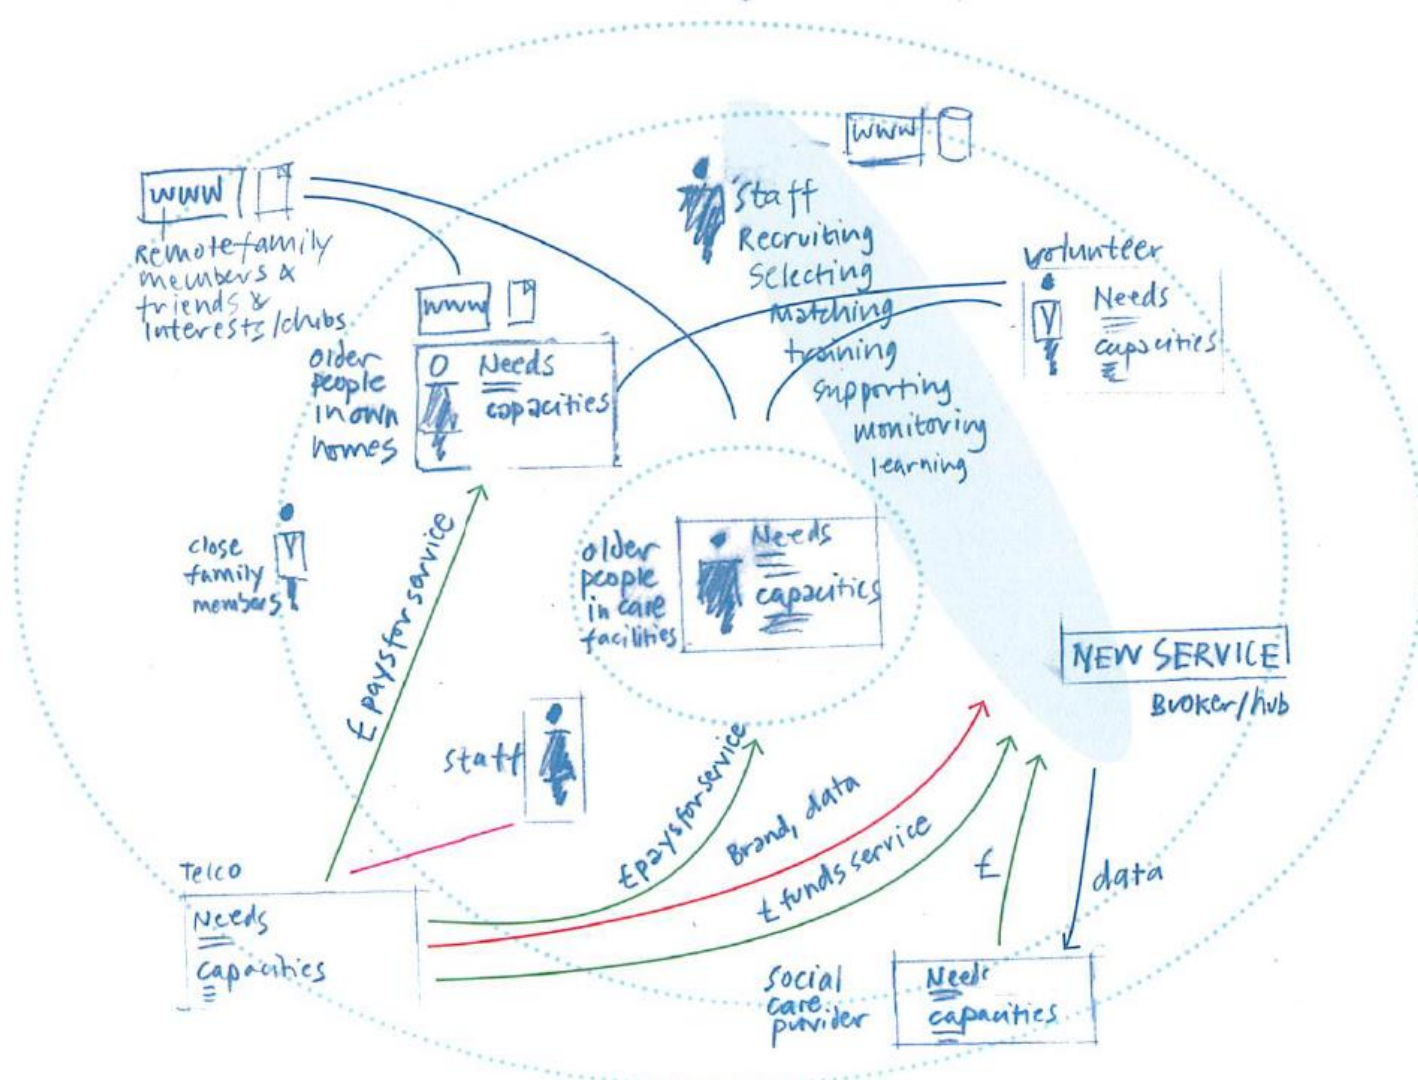 www
Remote family
members &
friends &
interests/clubs
www
older
people
in own
homes
Needs
capacities
www
staff
Recruiting
Selecting
Matching
training
supporting
monitoring
learning
volunteer
Needs
capacities
close
family
members
£ pays for service
older
people
in care
facilities
Needs
capacities
NEW SERVICE
Broker/hub
staff
£ pays for service
Brand, data
£ funds service
£
data
Telco
Needs
capacities
social
care
provider
Needs
capacities